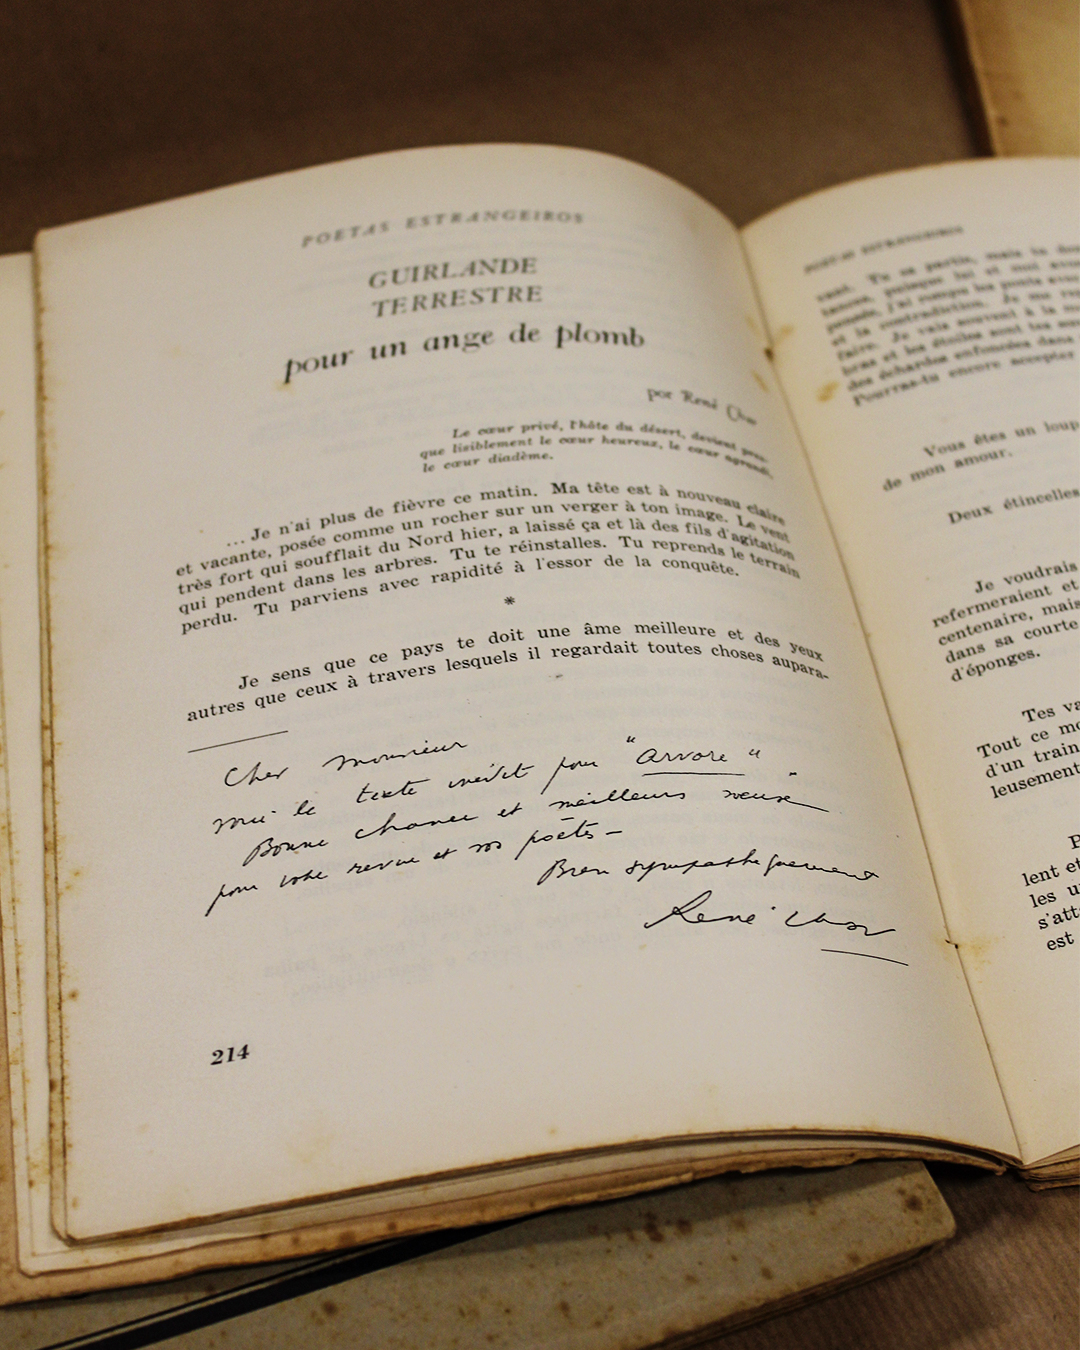 POETAS ESTRANGEIROS
GUIRLANDE
TERRESTRE
pour un ange de plomb
por René Char
Le cœur privé, l'hôte du désert, devient pres-
que lisiblement le cœur heureux, le cœur agrandi,
le cœur diadème.
... Je n'ai plus de fièvre ce matin. Ma tête est à nouveau claire
et vacante, posée comme un rocher sur un verger à ton image. Le vent
très fort qui soufflait du Nord hier, a laissé ça et là des fils d'agitation
qui pendent dans les arbres. Tu te réinstalles. Tu reprends le terrain
perdu. Tu parviens avec rapidité à l'essor de la conquête.
*
Je sens que ce pays te doit une âme meilleure et des yeux
autres que ceux à travers lesquels il regardait toutes choses aupara-
Cher Monsieur
voici le texte inédit pour "arvore"
Bonne chance et meilleurs voeux
pour votre revue et vos poètes —
Bien sympathiquement
René Char
214
POETAS ESTRANGEIROS
vant. Tu es partie, mais tu
puisque lui et moi
pensée, j'ai rompu les ponts
et la contradiction. Je me
faire. Je vais souvent à la
bras et les étoiles sont
des échardes enfoncées dans
Pourras-tu encore accepter
Vous êtes un loup
de mon amour.
Deux étincelles
Je voudrais
refermeraient et
centenaire, mais
dans sa courte
d'éponges.
Tes
Tout ce
d'un train
leusement
lent et
les
est